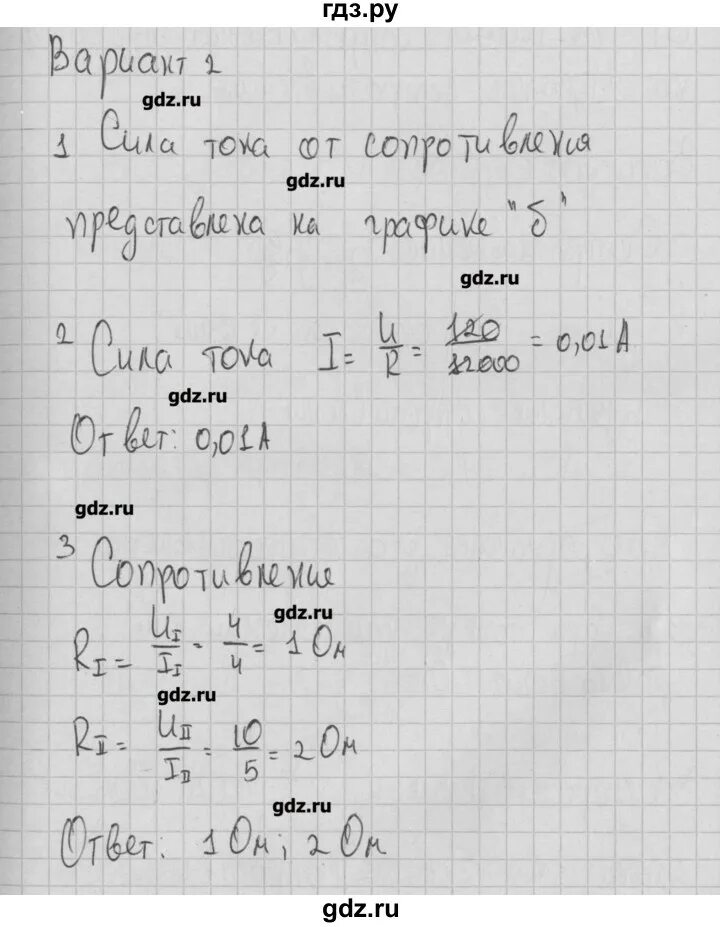 гдз.ру
Вариант 2
gdz.ru
1 Сила тока от сопротивления
gdz.ru
представлена на графике "б"
gdz.ru
2 Сила тока I = U/R = 120/12000 = 0,01 А
gdz.ru
Ответ: 0,01 А
gdz.ru
3 Сопротивление
gdz.ru
R_I = U_I/I_I = 4/4 = 1 Ом
gdz.ru
R_II = U_II/I_II = 10/5 = 2 Ом
gdz.ru
Ответ: 1 Ом; 2 Ом
gdz.ru